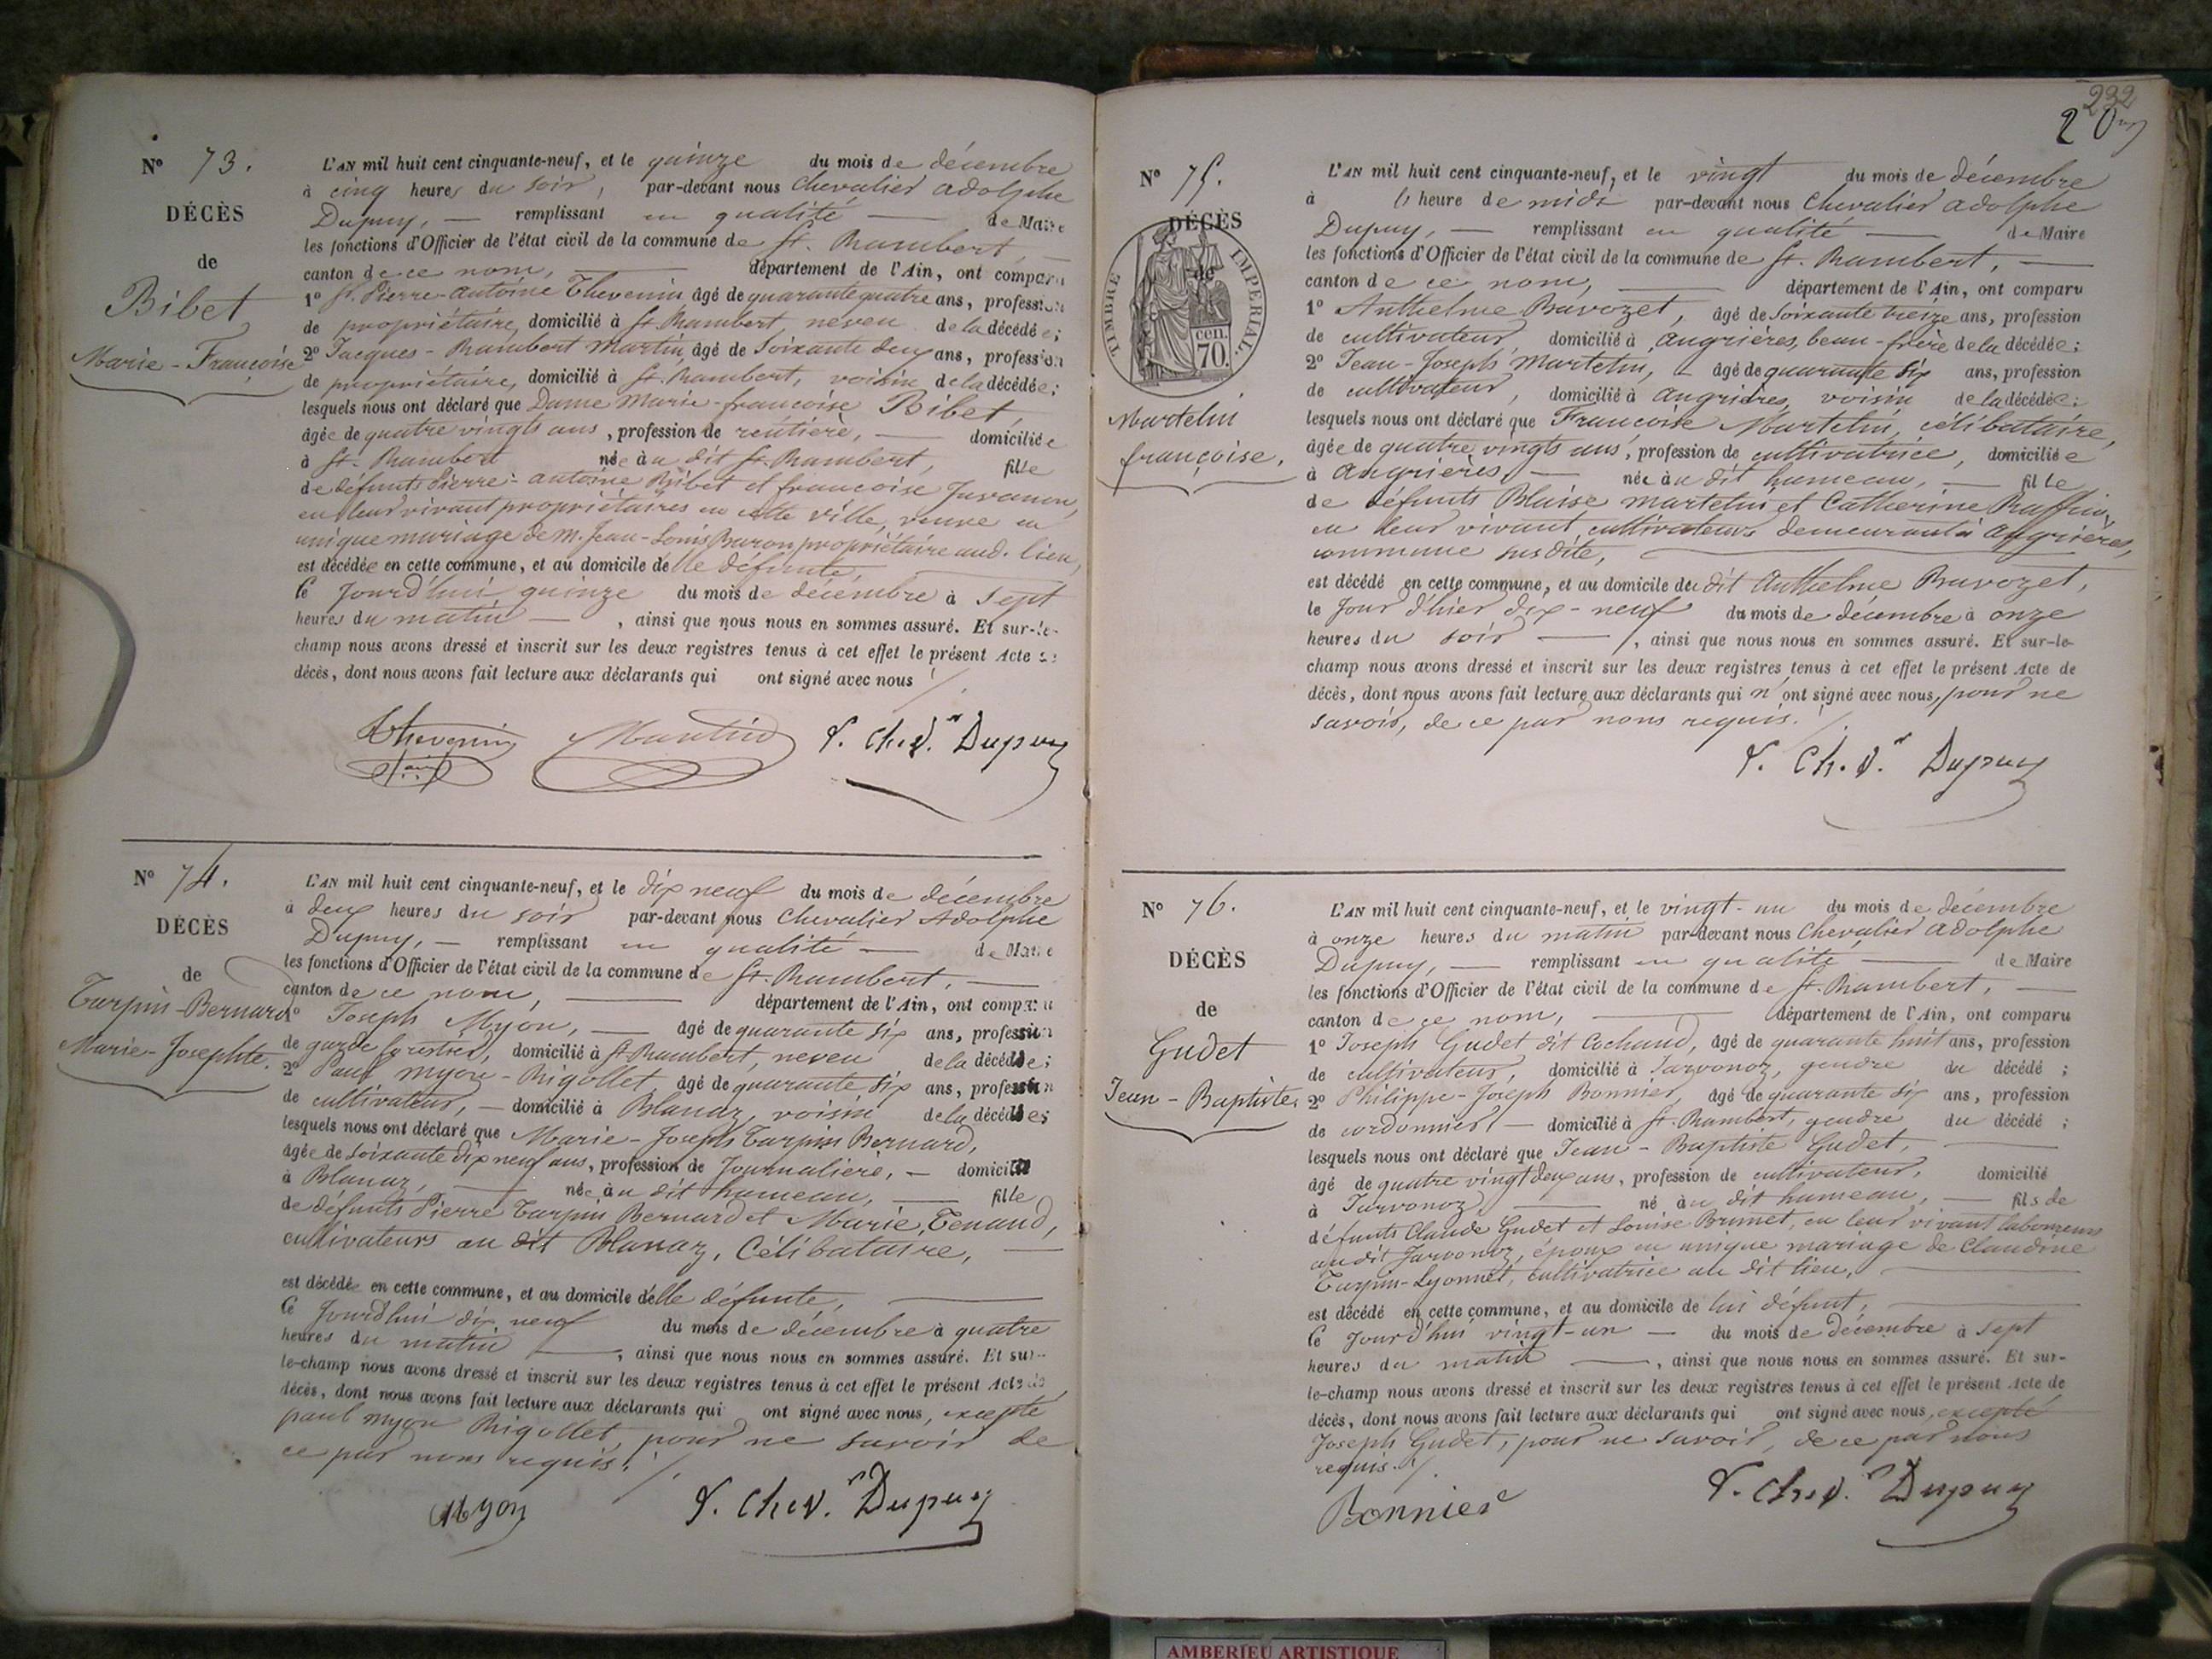 N° 73.
DÉCÈS
de
Bibet
Marie-Françoise
L'AN mil huit cent cinquante-neuf, et le quinze du mois de décembre
à cinq heures du soir, par-devant nous Chevalier Adolphe
Dupuy, — remplissant en qualité — de Maire
les fonctions d'Officier de l'état civil de la commune de St. Rambert, —
canton de ce nom, — département de l'Ain, ont comparu
1° St. Pierre-Antoine Thevenin âgé de quarante quatre ans, profession
de propriétaire, domicilié à St. Rambert, neveu de la décédée;
2° Jacques-Rambert Martin, âgé de soixante deux ans, profession
de propriétaire, domicilié à St. Rambert, voisin de la décédée;
lesquels nous ont déclaré que Dame Marie-françoise Bibet,
âgée de quatre vingts ans, profession de rentière, — domiciliée
à St. Rambert née àu dit St. Rambert, fille
de défunts Pierre-antoine Bibet et françoise Juvanon,
en leur vivant propriétaires en cette ville, veuve en
unique mariage de M. Jean-Louis Baron propriétaire aud. lieu,
est décédée en cette commune, et au domicile de lle défunte, —
le jourd'hui quinze du mois de décembre à sept
heures du matin —, ainsi que nous nous en sommes assuré. Et sur-le-
champ nous avons dressé et inscrit sur les deux registres tenus à cet effet le présent Acte de
décès, dont nous avons fait lecture aux déclarants qui ont signé avec nous
Thevenin Martin A. Chev.r Dupuy
N° 74.
DÉCÈS
de
Turpin-Bernard
Marie-Josephte.
L'AN mil huit cent cinquante-neuf, et le dix neuf du mois de décembre
à deux heures du soir par-devant nous Chevalier Adolphe
Dupuy, — remplissant en qualité — de Maire
les fonctions d'Officier de l'état civil de la commune de St. Rambert, —
canton de ce nom, — département de l'Ain, ont comparu
1° Joseph Myon, — âgé de quarante six ans, profession
de garde forestier, domicilié à St Rambert, neveu de la décédée;
2° Paul Myon-Rigollet, âgé de quarante six ans, profession
de cultivateur, — domicilié à Blanaz, voisin de la décédée;
lesquels nous ont déclaré que Marie-Joseph Turpin Bernard,
âgée de soixante dix neuf ans, profession de Journalière, — domicilié
à Blanaz, — née àu dit hameau, — fille
de défunts Pierre Turpin Bernard et Marie Tenand,
cultivateurs au dit Blanaz, Célibataire, —
est décédée en cette commune, et au domicile de lle défunte, —
le jourd'hui dix neuf du mois de décembre à quatre
heures du matin —, ainsi que nous nous en sommes assuré. Et sur-
le-champ nous avons dressé et inscrit sur les deux registres tenus à cet effet le présent Acte de
décès, dont nous avons fait lecture aux déclarants qui ont signé avec nous, excepté
paul myon Rigollet, pour ne savoir de
ce par nous requis.
Myon A. Chev.r Dupuy
232
N° 75.
DÉCÈS
de
TIMBRE IMPERIAL.
cen.
70.
Martelin
françoise.
L'AN mil huit cent cinquante-neuf, et le vingt du mois de décembre
à l' heure de midi par-devant nous Chevalier Adolphe
Dupuy, — remplissant en qualité — de Maire
les fonctions d'Officier de l'état civil de la commune de St. Rambert, —
canton de ce nom, — département de l'Ain, ont comparu
1° Anthelme Bravozet, âgé de soixante treize ans, profession
de cultivateur domicilié à Angrières, beau-frère de la décédée;
2° Jean-Joseph Martelin, — âgé de quarante six ans, profession
de cultivateur, domicilié à Angrières, voisin de la décédée;
lesquels nous ont déclaré que Françoise Martelin, célibataire,
âgée de quatre vingts ans, profession de cultivatrice, domiciliée
à Angrières, — née àu dit hameau, — fille
de défunts Blaise Martelin et Catherine Raffin,
en leur vivant cultivateurs demeurant à Angrières,
commune susdite, —
est décédé en cette commune, et au domicile du dit Anthelme Bravozet,
le jour d'hier dix-neuf du mois de décembre à onze
heures du soir —, ainsi que nous nous en sommes assuré. Et sur-le-
champ nous avons dressé et inscrit sur les deux registres tenus à cet effet le présent Acte de
décès, dont nous avons fait lecture aux déclarants qui n'ont signé avec nous, pour ne
savoir, de ce par nous requis.
A. Ch.v.r Dupuy
N° 76.
DÉCÈS
de
Gudet
Jean-Baptiste.
L'AN mil huit cent cinquante-neuf, et le vingt-un du mois de décembre
à onze heures du matin par-devant nous Chevalier Adolphe
Dupuy, — remplissant en qualité — de Maire
les fonctions d'Officier de l'état civil de la commune de St. Rambert, —
canton de ce nom, — département de l'Ain, ont comparu
1° Joseph Gudet dit Cochand, âgé de quarante huit ans, profession
de cultivateur, domicilié à Jarvonoz, gendre du décédé;
2° Philippe-Joseph Bonnier, âgé de quarante six ans, profession
de cordonnier — domicilié à St. Rambert, gendre du décédé;
lesquels nous ont déclaré que Jean-Baptiste Gudet, —
âgé de quatre vingt deux ans, profession de cultivateur, domicilié
à Jarvonoz, — né àu dit hameau, — fils de
défunts Claude Gudet et Louise Brunet, en leur vivant laboureurs
au dit Jarvonoz, époux en unique mariage de Claudine
Turpin-Lyonnet, cultivatrice au dit lieu, —
est décédé en cette commune, et au domicile de lui défunt, —
le jourd'hui vingt-un — du mois de décembre à sept
heures du matin —, ainsi que nous nous en sommes assuré. Et sur-
le-champ nous avons dressé et inscrit sur les deux registres tenus à cet effet le présent Acte de
décès, dont nous avons fait lecture aux déclarants qui ont signé avec nous, excepté
Joseph Gudet, pour ne savoir, de ce par nous
requis.
Bonnier A. Chev.r Dupuy
AMBERIEU ARTISTIQUE